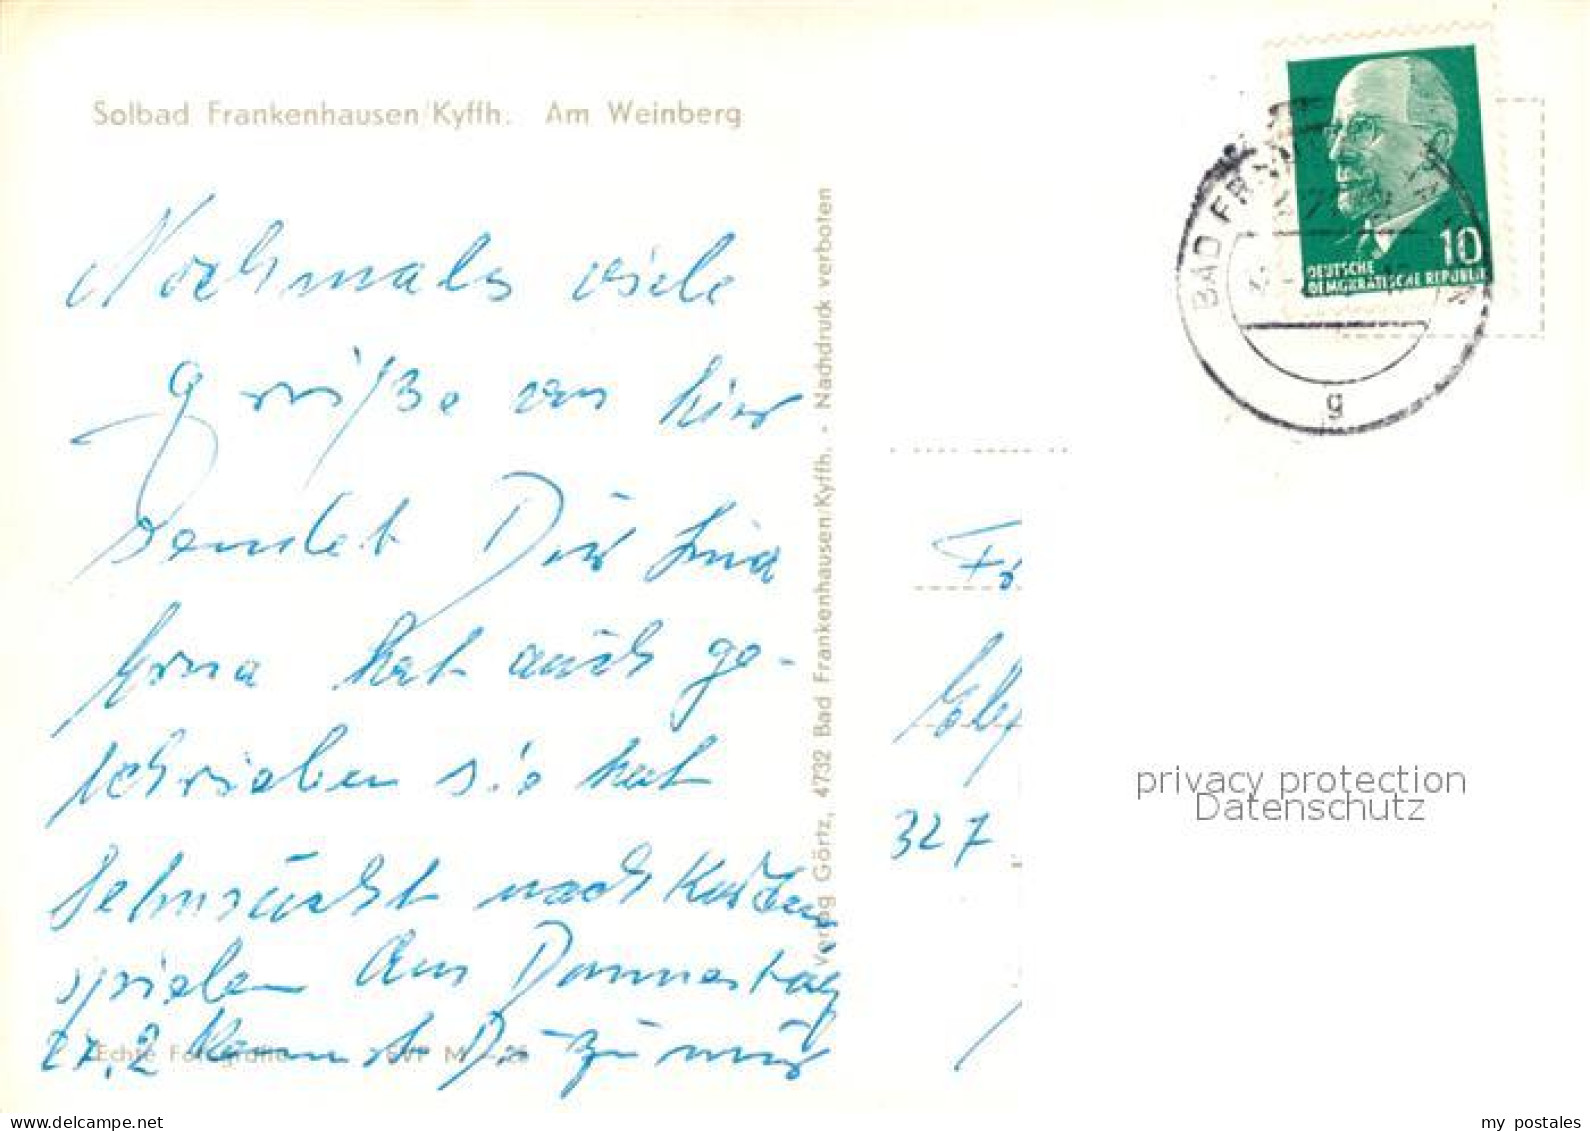 Solbad Frankenhausen/Kyffh. Am Weinberg
Nochmals viele
grüße von hier
sendet Dir Lina
Erna hat auch ge-
schrieben sie hat
Sehnsucht nach Karten
spielen Am Donnerstag
27.2 kannst Du zu mir
Echte Fotografie
Verlag Görtz, 4732 Bad Frankenhausen/Kyffh. • Nachdruck verboten
BAD FRANKENHAUSEN
g
10
DEUTSCHE
DEMOKRATISCHE REPUBLIK
327
privacy protection
Datenschutz
my postales